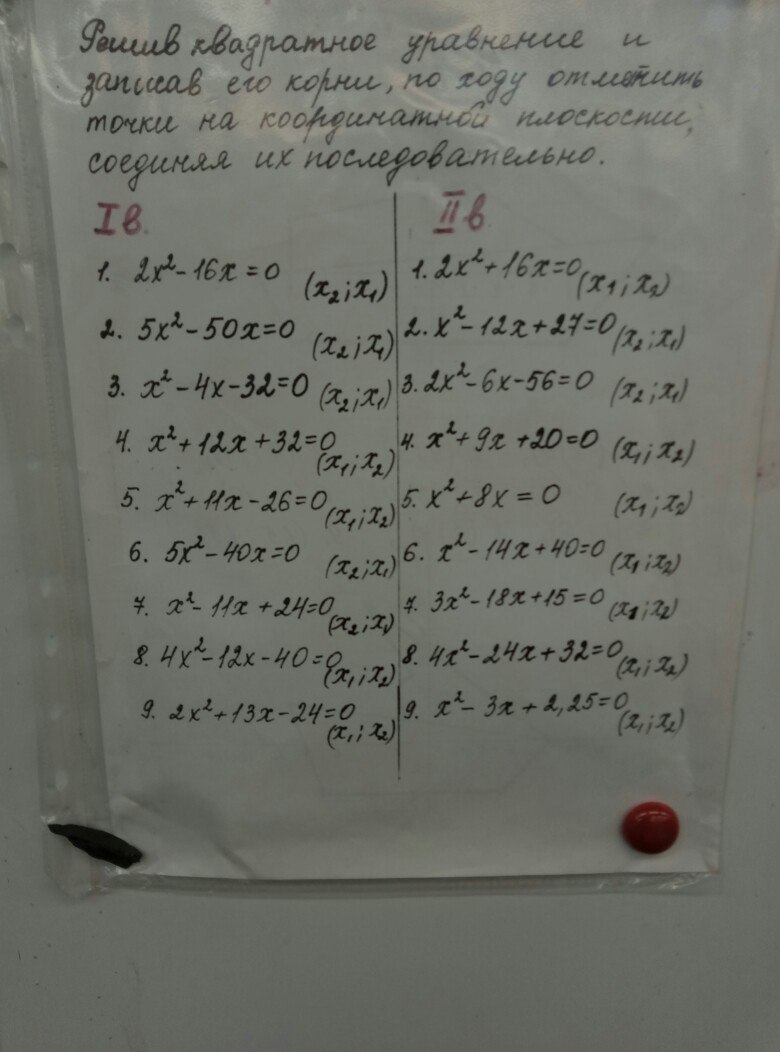 Решив квадратное уравнение и
записав его корни, по ходу отметить
точки на координатной плоскости,
соединяя их последовательно.
I в.
1. 2x²-16x=0 (x₂;x₁)
2. 5x²-50x=0 (x₂;x₁)
3. x²-4x-32=0 (x₂;x₁)
4. x²+12x+32=0 (x₁;x₂)
5. x²+11x-26=0 (x₁;x₂)
6. 5x²-40x=0 (x₂;x₁)
7. x²-11x+24=0 (x₂;x₁)
8. 4x²-12x-40=0 (x₁;x₂)
9. 2x²+13x-24=0 (x₁;x₂)
II в
1. 2x²+16x=0 (x₁;x₂)
2. x²-12x+27=0 (x₂;x₁)
3. 2x²-6x-56=0 (x₂;x₁)
4. x²+9x+20=0 (x₁;x₂)
5. x²+8x=0 (x₁;x₂)
6. x²-14x+40=0 (x₁;x₂)
7. 3x²-18x+15=0 (x₁;x₂)
8. 4x²-24x+32=0 (x₁;x₂)
9. x²-3x+2,25=0 (x₁;x₂)